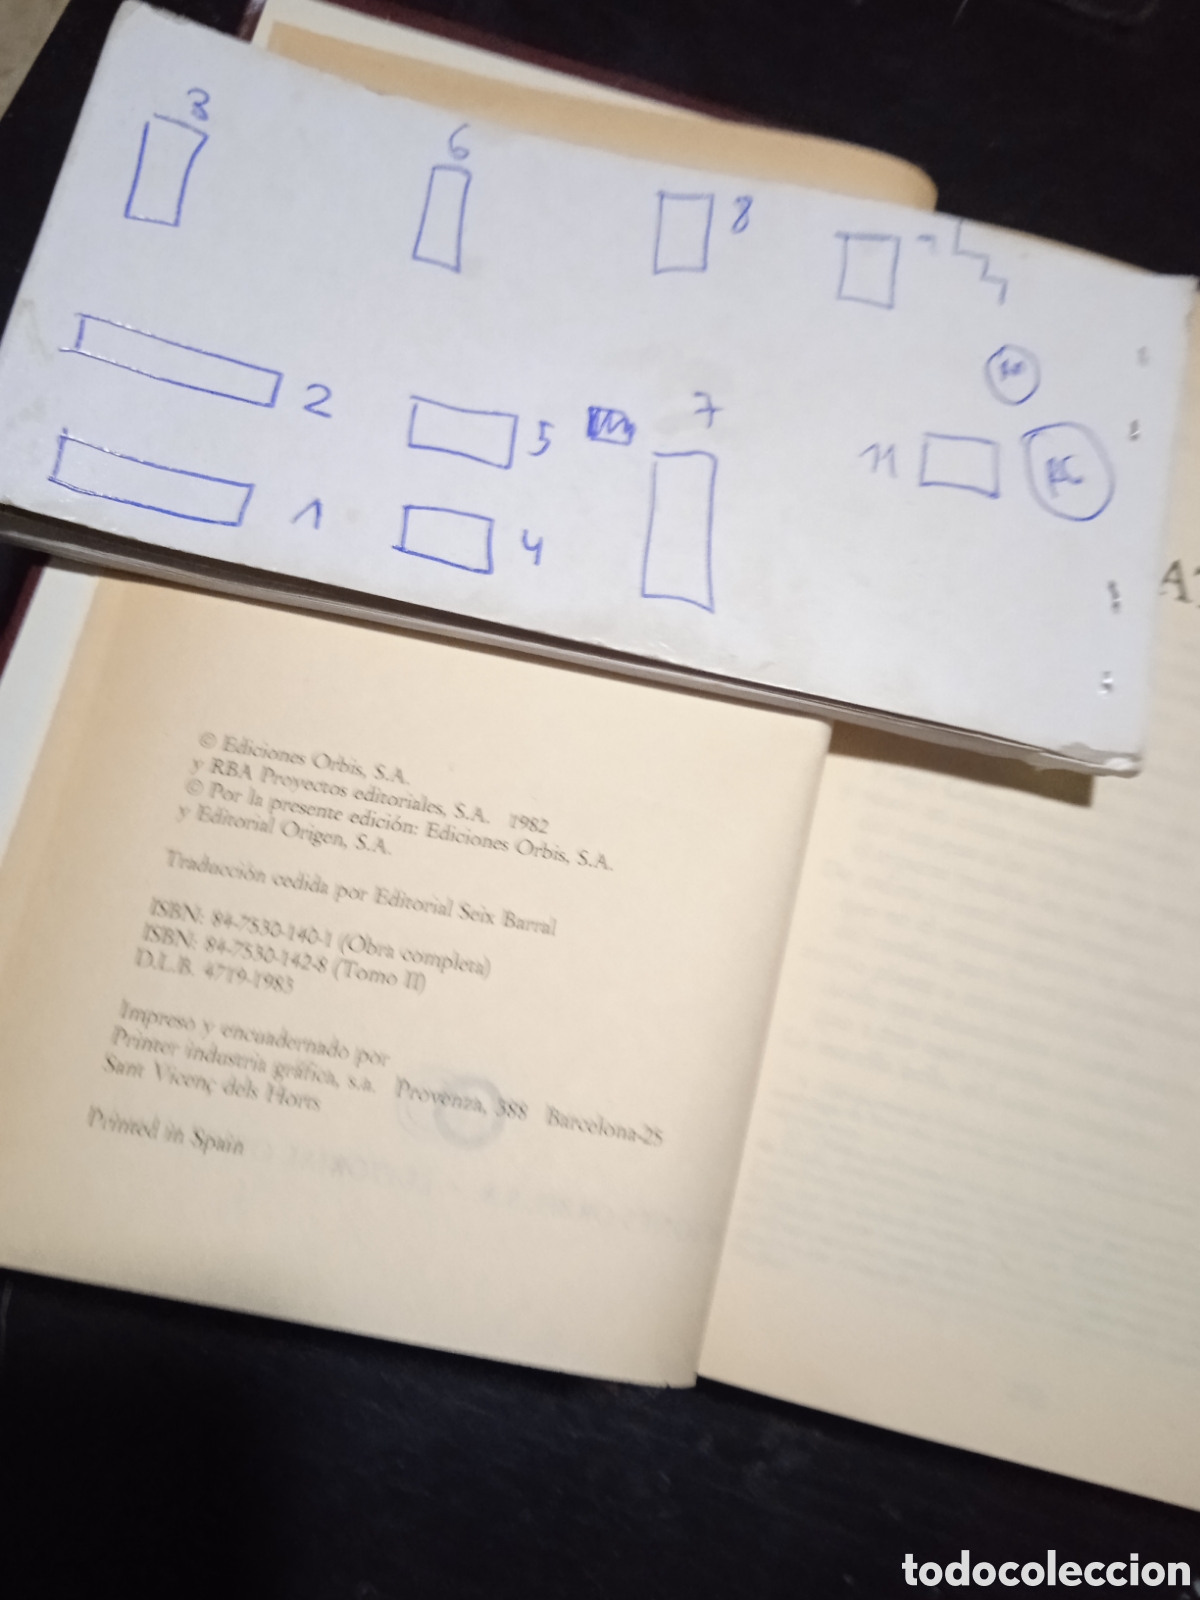 3
6
8
2
5
7
11
1
4
© Ediciones Orbis, S.A.
y RBA Proyectos editoriales, S.A. 1982
© Por la presente edición: Ediciones Orbis, S.A.
y Editorial Origen, S.A.
Traducción cedida por Editorial Seix Barral
ISBN: 84-7530-140-1 (Obra completa)
ISBN: 84-7530-142-8 (Tomo II)
D.L.B. 4719-1983
Impreso y encuadernado por
Printer industria gráfica, s.a. Provenza, 388 Barcelona-25
Sant Vicenç dels Horts
Printed in Spain
todocoleccion